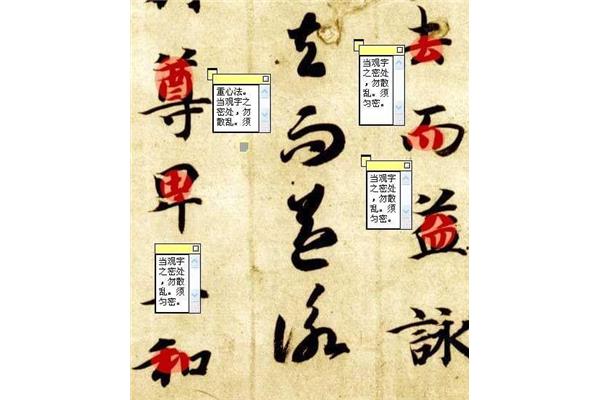 去而益詠
去而益詠
尊卑
和
当观字
之密处
，勿散
乱。须
匀密。
当观字
之密处
，勿散
乱。须
匀密。
重心法。
当观字之
密处，勿
散乱。须
当观字
之密处
，勿散
乱。须
匀密。